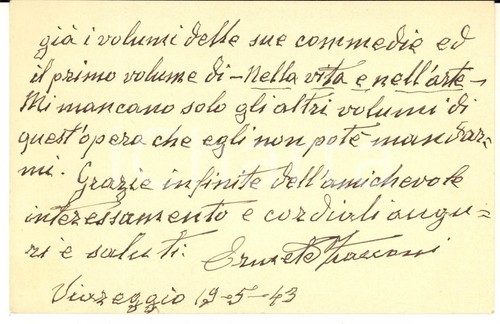 già i volumi delle sue commedie ed
il primo volume di - Nella vita e nell'arte -
Mi mancano solo gli altri volumi di
quest'opera che egli non poté mandar=
mi. Grazie infinite dell'amichevole
interessamento e cordiali augu=
ri e saluti. Ermete Zacconi
Viareggio 19-5-43